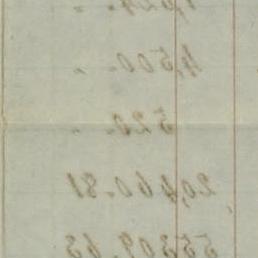 4,500. "
520. "
20,460.81
55,309.63